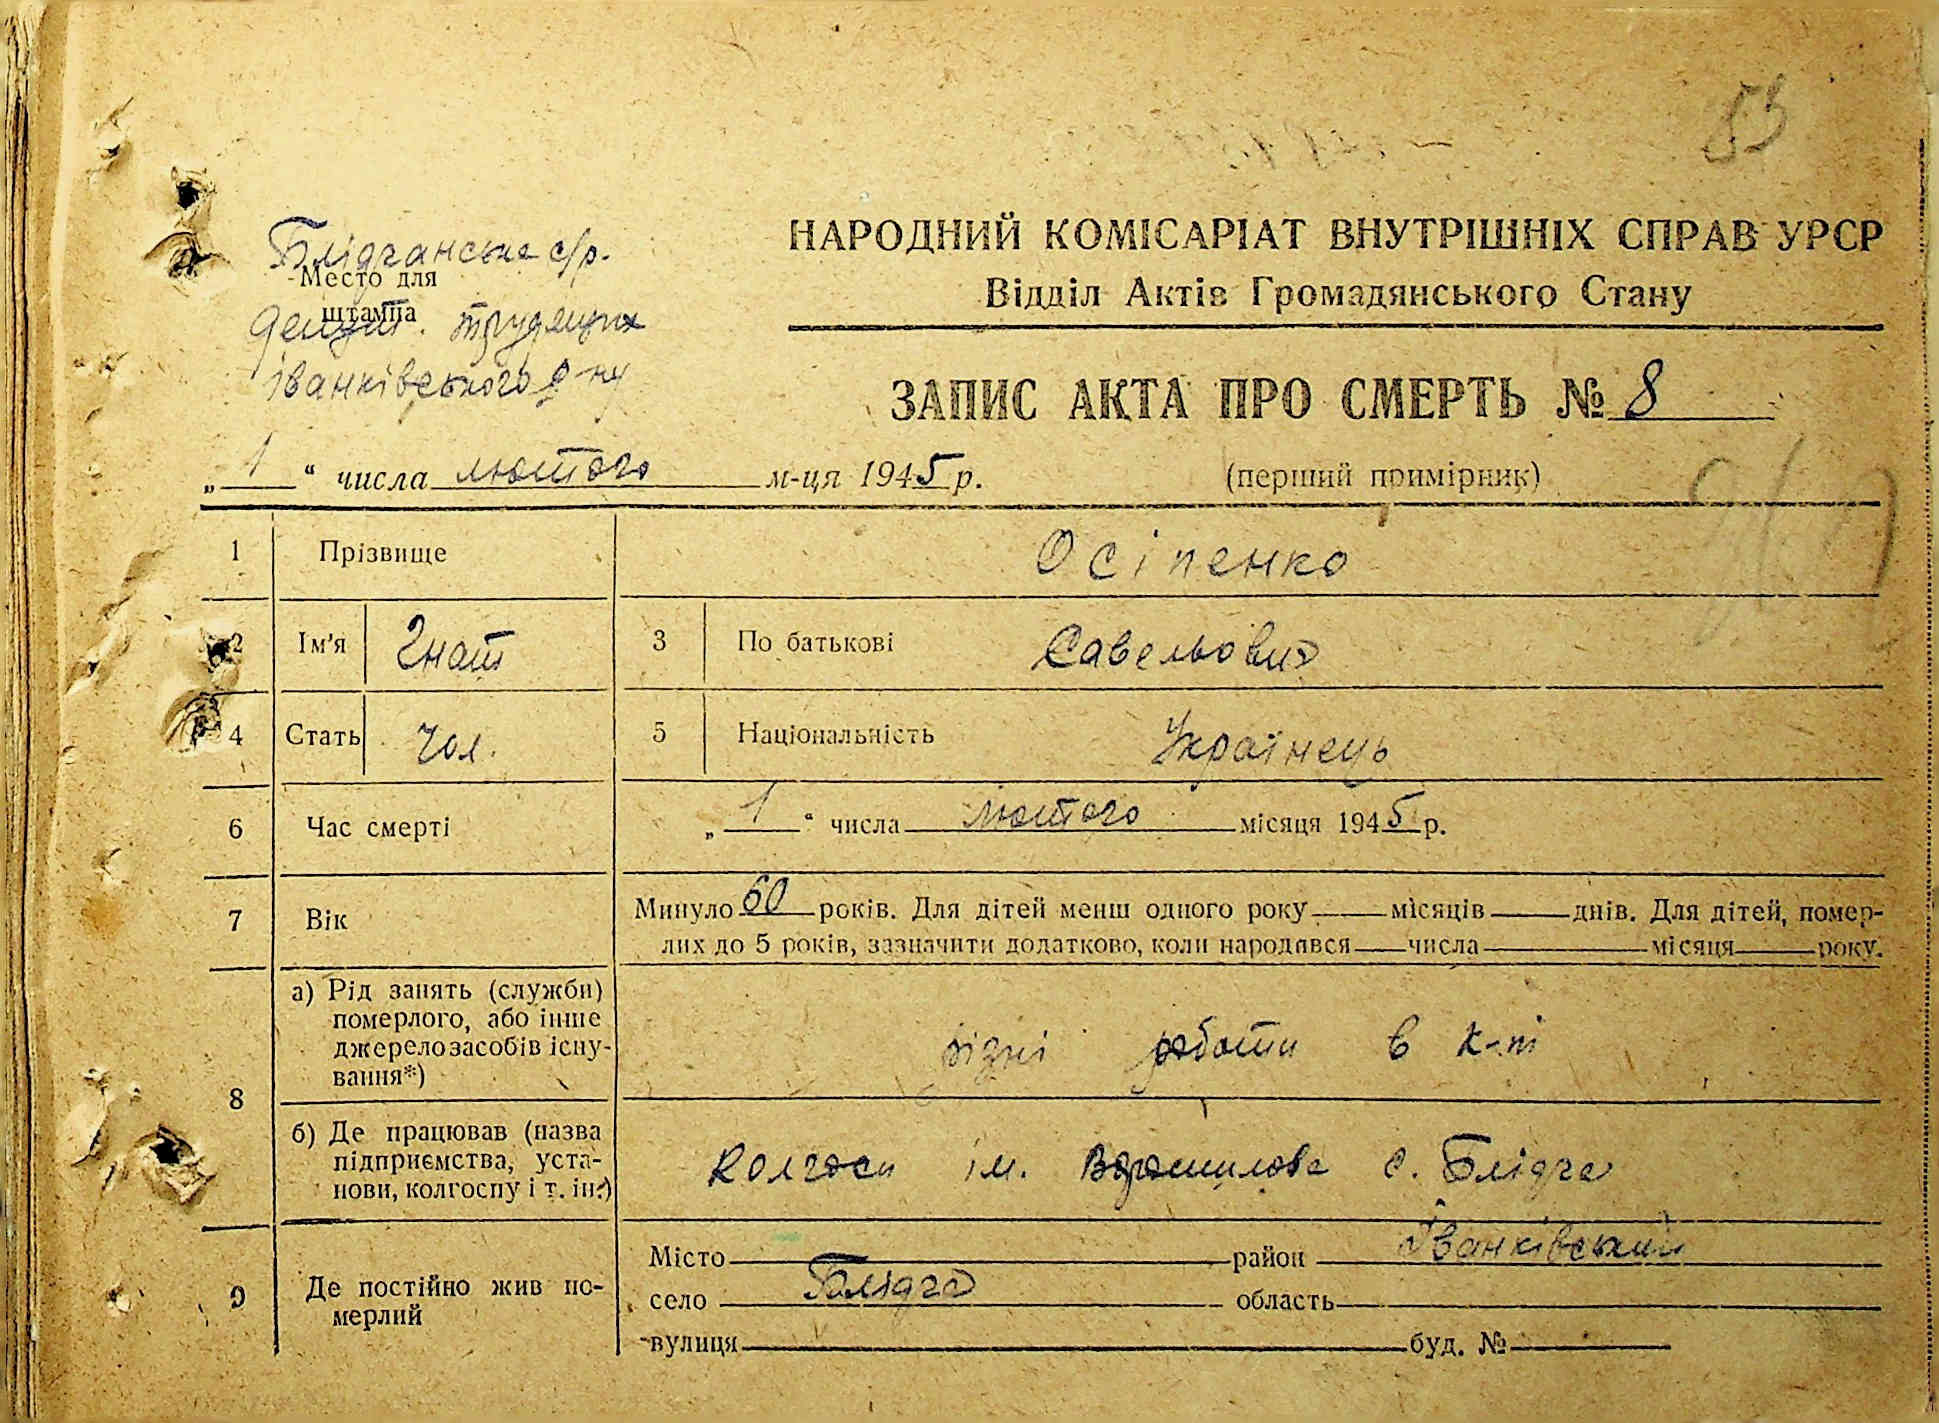 53
Блідчанська с/р.
Место для
штампа
депут. трудящих
Іванківського р-ну
НАРОДНИЙ КОМІСАРІАТ ВНУТРІШНІХ СПРАВ УРСР
Відділ Актів Громадянського Стану
ЗАПИС АКТА ПРО СМЕРТЬ № 8
„ 1 “ числа лютого м-ця 1945 р.
(перший примірник)
1 Прізвище Осіпенко
2 Ім'я Гнат 3 По батькові Савельович
4 Стать чол. 5 Національність Українець
6 Час смерті „ 1 “ числа лютого місяця 1945 р.
7 Вік Минуло 60 років. Для дітей менш одного року місяців днів. Для дітей, помер-
лих до 5 років, зазначити додатково, коли народився числа місяця року.
8 а) Рід занять (служби)
померлого, або інше
джерело засобів існу-
вання*)
різні работи в к-пі
б) Де працював (назва
підприємства, уста-
нови, колгоспу і т. ін.)
Колгосп ім. Ворошилова с. Блідча
9 Де постійно жив по-
мерлий
Місто район Іванківський
село Блідча область
вулиця буд. №